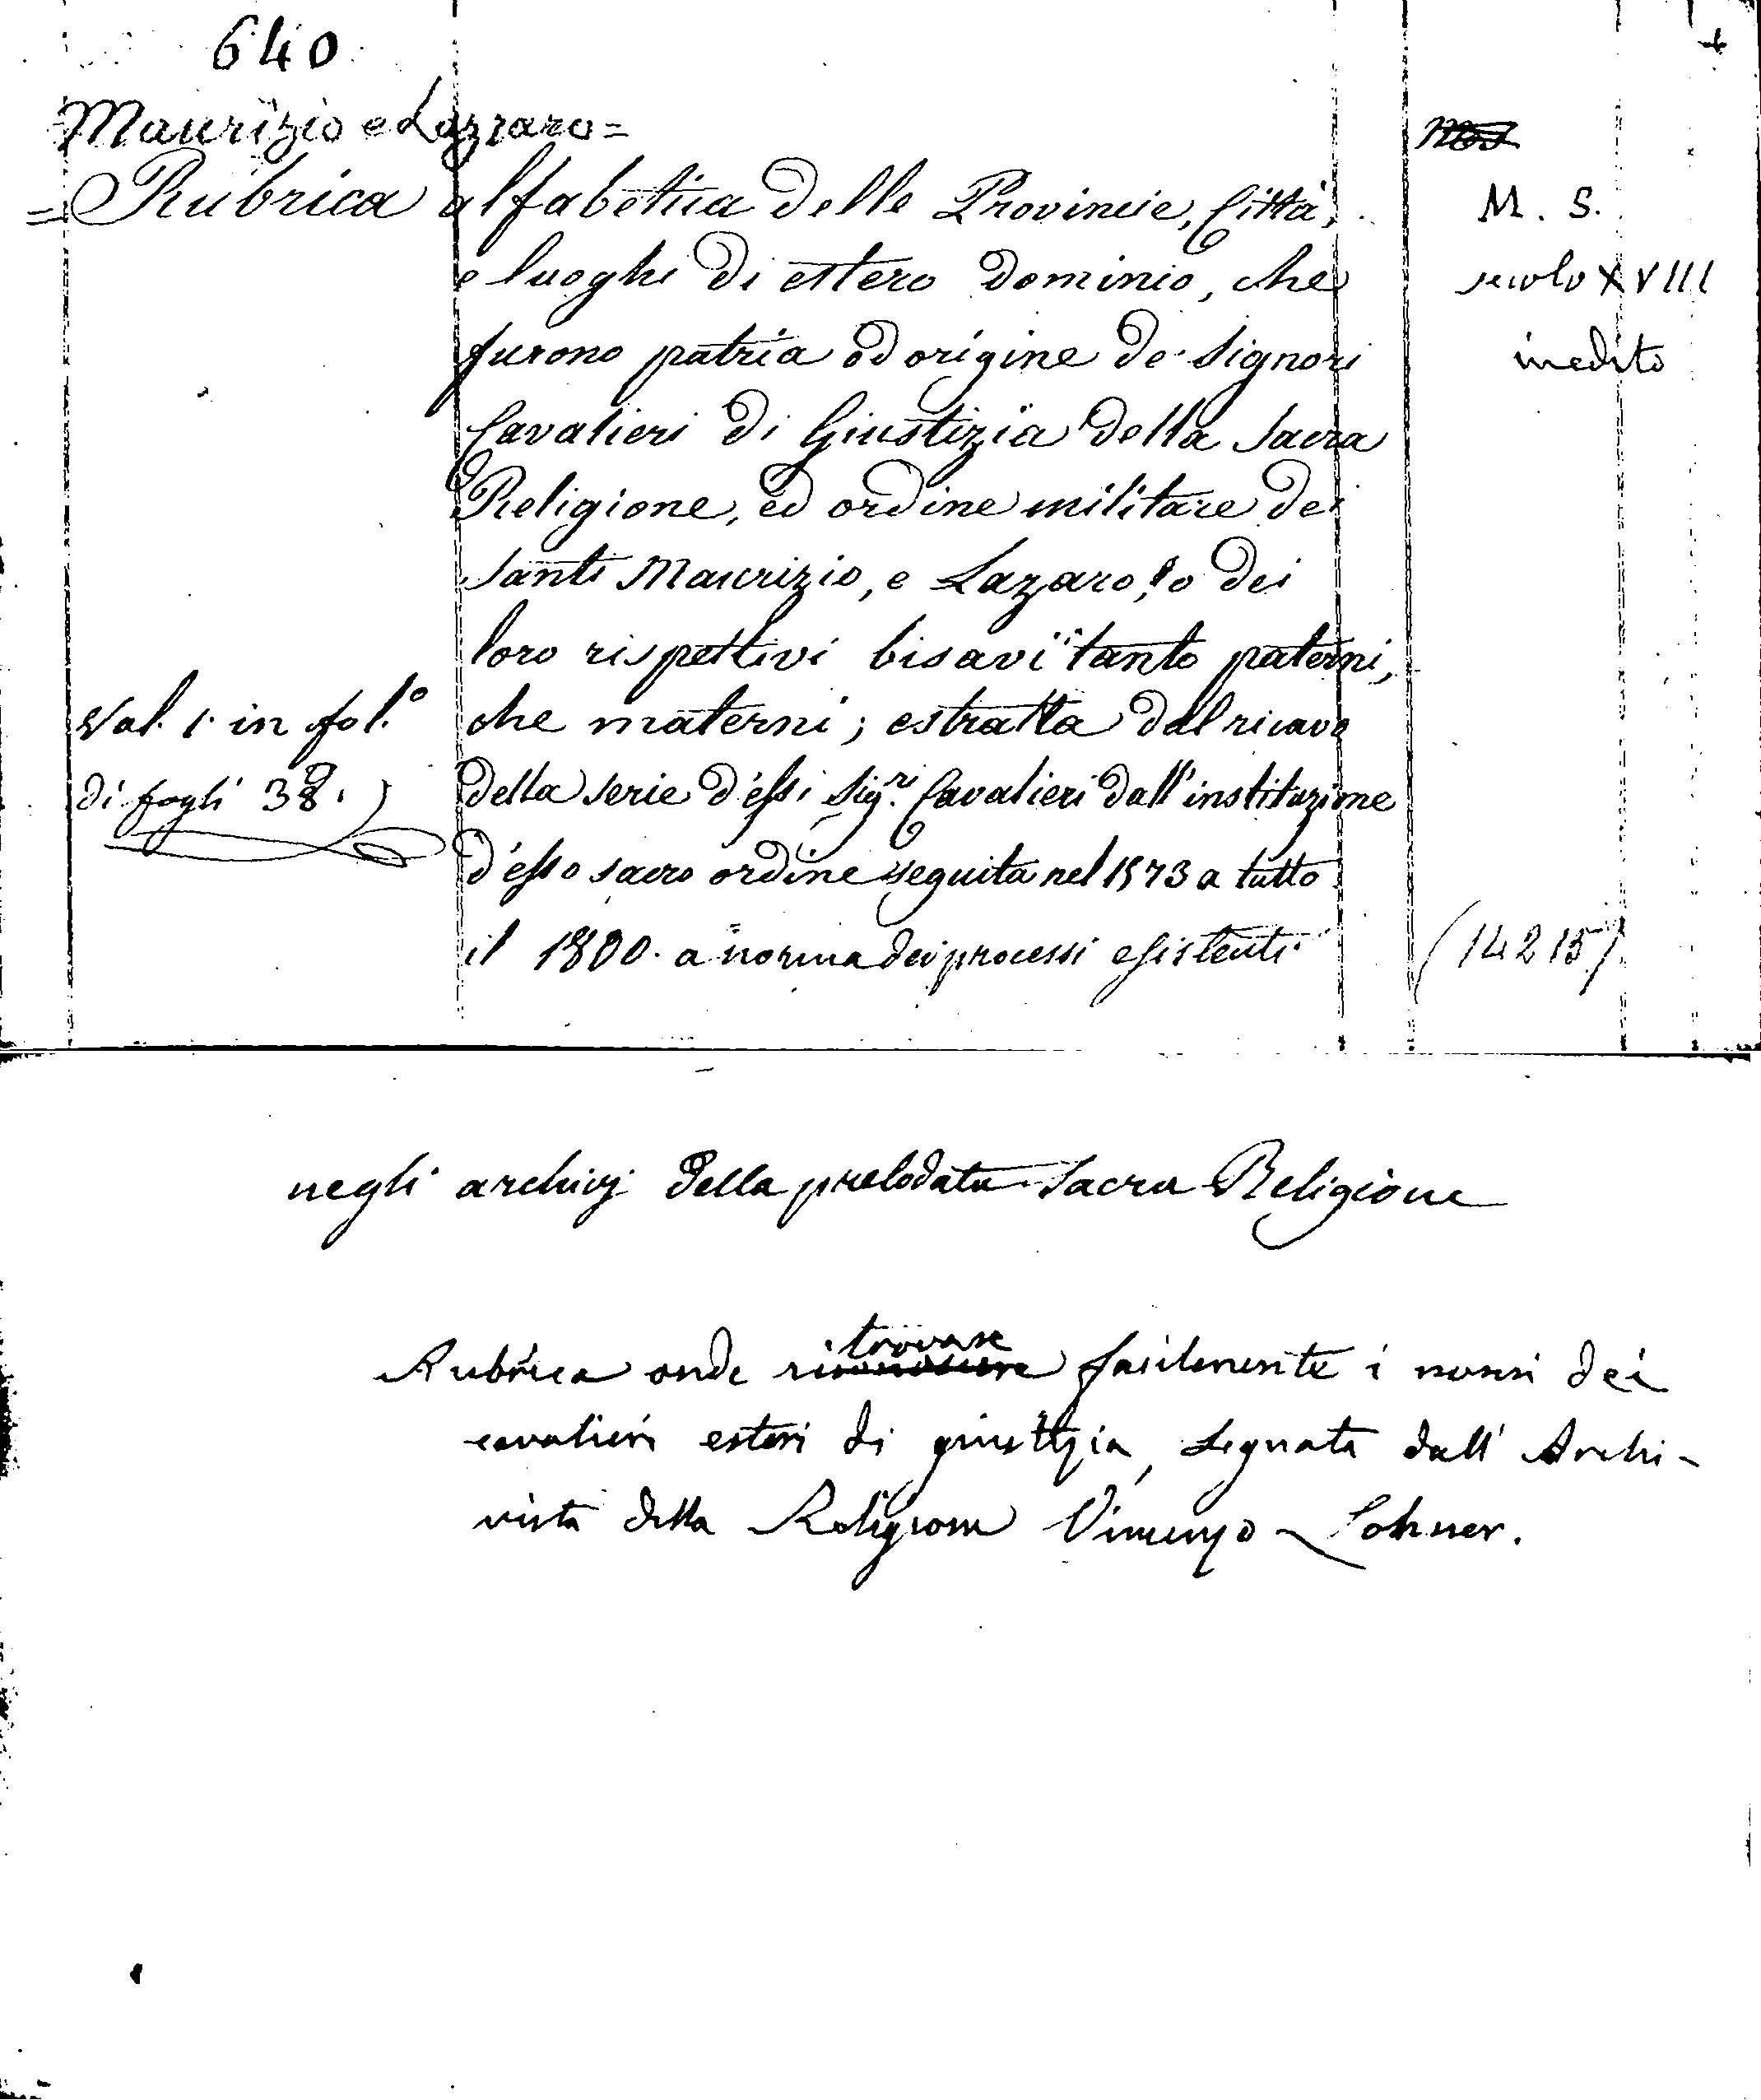 640
Maurizio e Lazzaro=
=Rubrica alfabetica delle Provincie, Città,
M. S.
e luoghi di estero dominio, che
secolo XVIII
furono patria od origine de' Signori
inedito
Cavalieri di Giustizia della Sacra
Religione, ed ordine militare dei
Santi Maurizio, e Lazaro, o dei
loro rispettivi bisavi tanto paterni,
Vol. 1. in fol.º
che materni; estratta dal ricavo
di fogli 38.
della serie d'essi Sig.ri Cavalieri dall'instituzione
d'esso sacro ordine seguita nel 1573 a tutto
il 1800. a norma dei processi esistenti
(14215)
negli archivj della prelodata Sacra Religione
Rubrica onde ritrovare facilmente i nomi dei
cavalieri esteri di giustizia, segnata dall' Archi-
vista della Religione Vincenzo Lohner.